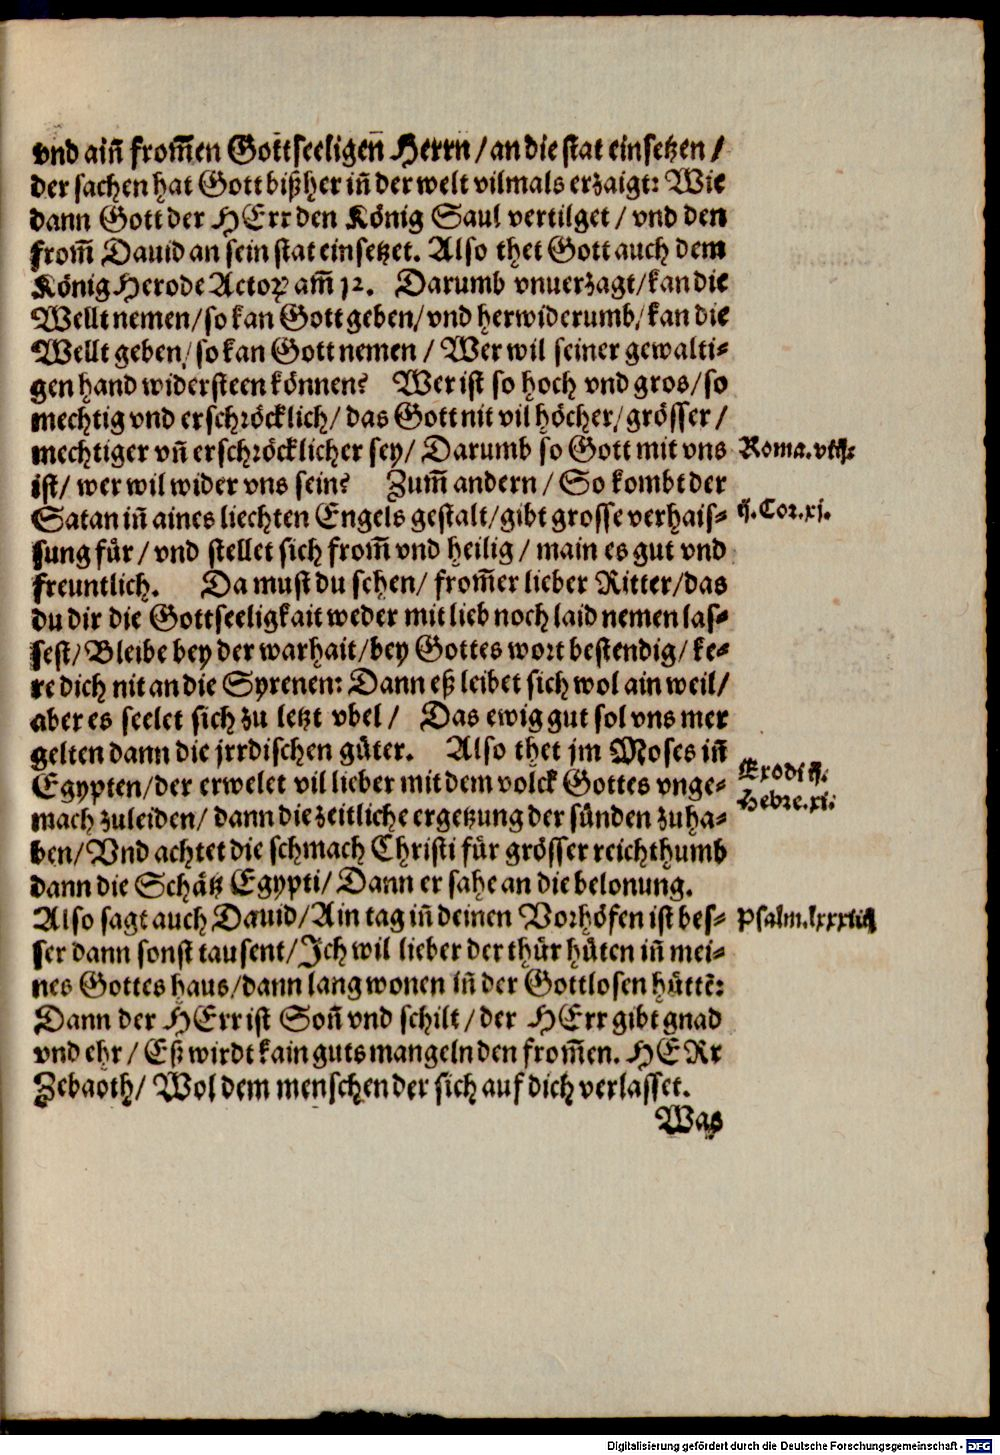 vnd ain̄ from̄en Gottseeligen̄ Herrn / an die stat einsetzen /
der sachen hat Gott bißher in̄ der welt vilmals erzaigt: Wie
dann Gott der HErr den König Saul vertilget / vnd den
from̄ Dauid an sein stat einsetzet. Also thet Gott auch dem
König Herode Actoꝝ am̄ 12. Darumb vnuerzagt / kan die
Wellt nemen / so kan Gott geben / vnd herwiderumb / kan die
Wellt geben / so kan Gott nemen / Wer wil seiner gewalti⸗
gen hand widersteen können? Wer ist so hoch vnd gros / so
mechtig vnd erschröcklich / das Gott nit vil höcher / grösser /
mechtiger vn̄ erschröcklicher sey / Darumb so Gott mit vns
Roma. viij.
ist / wer wil wider vns sein? Zum̄ andern / So kombt der
Satan in̄ aines liechten Engels gestalt / gibt grosse verhais⸗
ij. Cor. xj.
sung für / vnd stellet sich from̄ vnd heilig / main es gut vnd
freuntlich. Da must du sehen / from̄er lieber Ritter / das
du dir die Gottseeligkait weder mit lieb noch laid nemen las⸗
sest / Bleibe bey der warhait / bey Gottes wort bestendig / ke⸗
re dich nit an die Syrenen: Dann eß leibet sich wol ain weil /
aber es seelet sich zu letzt vbel / Das ewig gut sol vns mer
gelten dann die jrrdischen güter. Also thet jm Moses in̄
Egypten / der erwelet vil lieber mit dem volck Gottes vnge⸗
Exodi ij.
Hebre. xi.
mach zuleiden / dann die zeitliche ergetzung der sünden zuha⸗
ben / Vnd achtet die schmach Christi für grösser reichthumb
dann die Schätz Egypti / Dann er sahe an die belonung.
Also sagt auch Dauid / Ain tag in̄ deinen Vorhöfen ist bes⸗
Psalm. lxxxiiij
ser dann sonst tausent / Ich wil lieber der thür hüten in̄ mei⸗
nes Gottes haus / dann lang wonen in̄ der Gottlosen hüttē:
Dann der HErr ist Son̄ vnd schilt / der HErr gibt gnad
vnd ehr / Eß wirdt kain guts mangeln den from̄en. HERr
Zebaoth / Wol dem menschen der sich auf dich verlasset.
Was
Digitalisierung gefördert durch die Deutsche Forschungsgemeinschaft - DFG